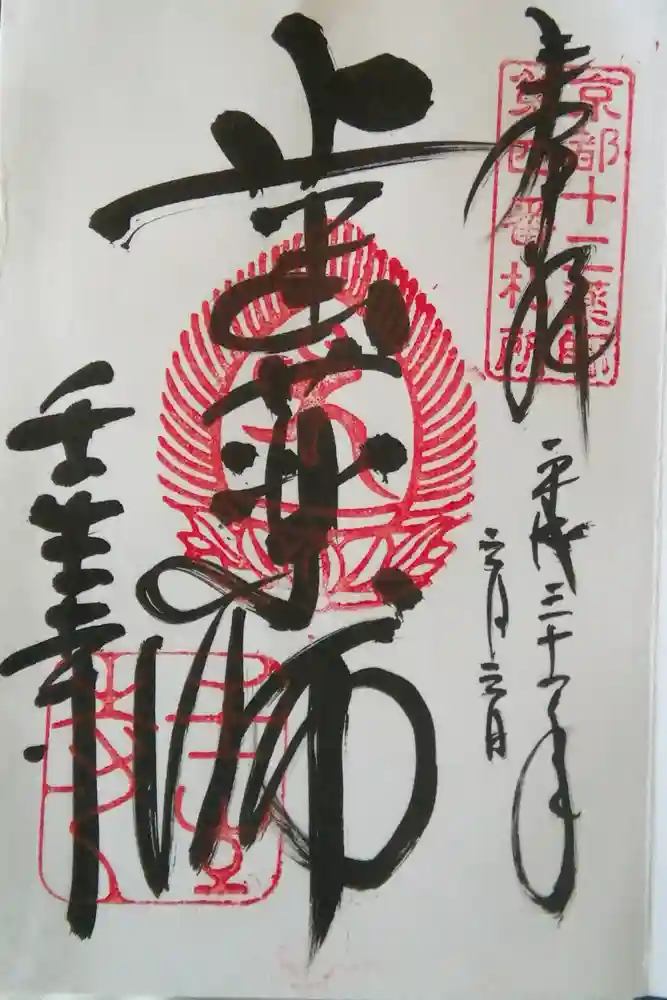 京都十二薬師
第四番札所
奉拝
平成三十一年
月 日
歯薬師
壬生寺